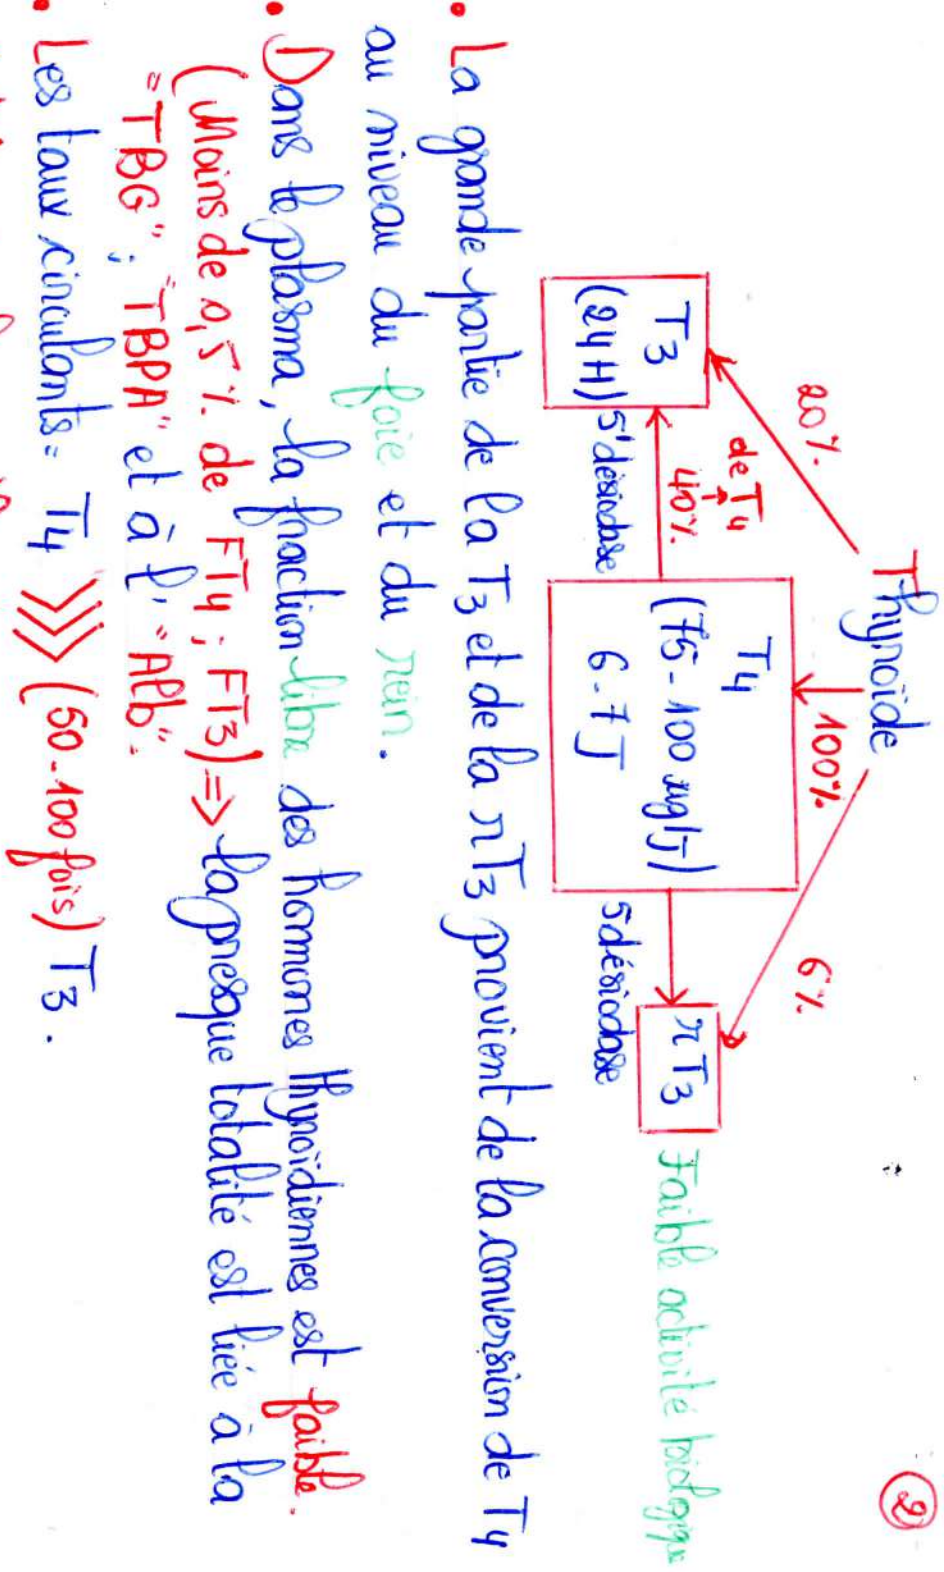 2
Thyroïde
20% 100% 6%
T3
(24H)
de T4
40%
5'désiodase
T4
(75-100 µg/J)
6-7J
5désiodase
rT3
Faible activité biologique
• La grande partie de la T3 et de la rT3 provient de la conversion de T4
au niveau du foie et du rein.
• Dans le plasma, la fraction libre des hormones thyroïdiennes est faible.
(Moins de 0,5% de FT4; FT3) => la presque totalité est liée à la
"TBG"; "TBPA" et à l'"Alb".
• Les taux circulants = T4 >>> (50-100 fois) T3.